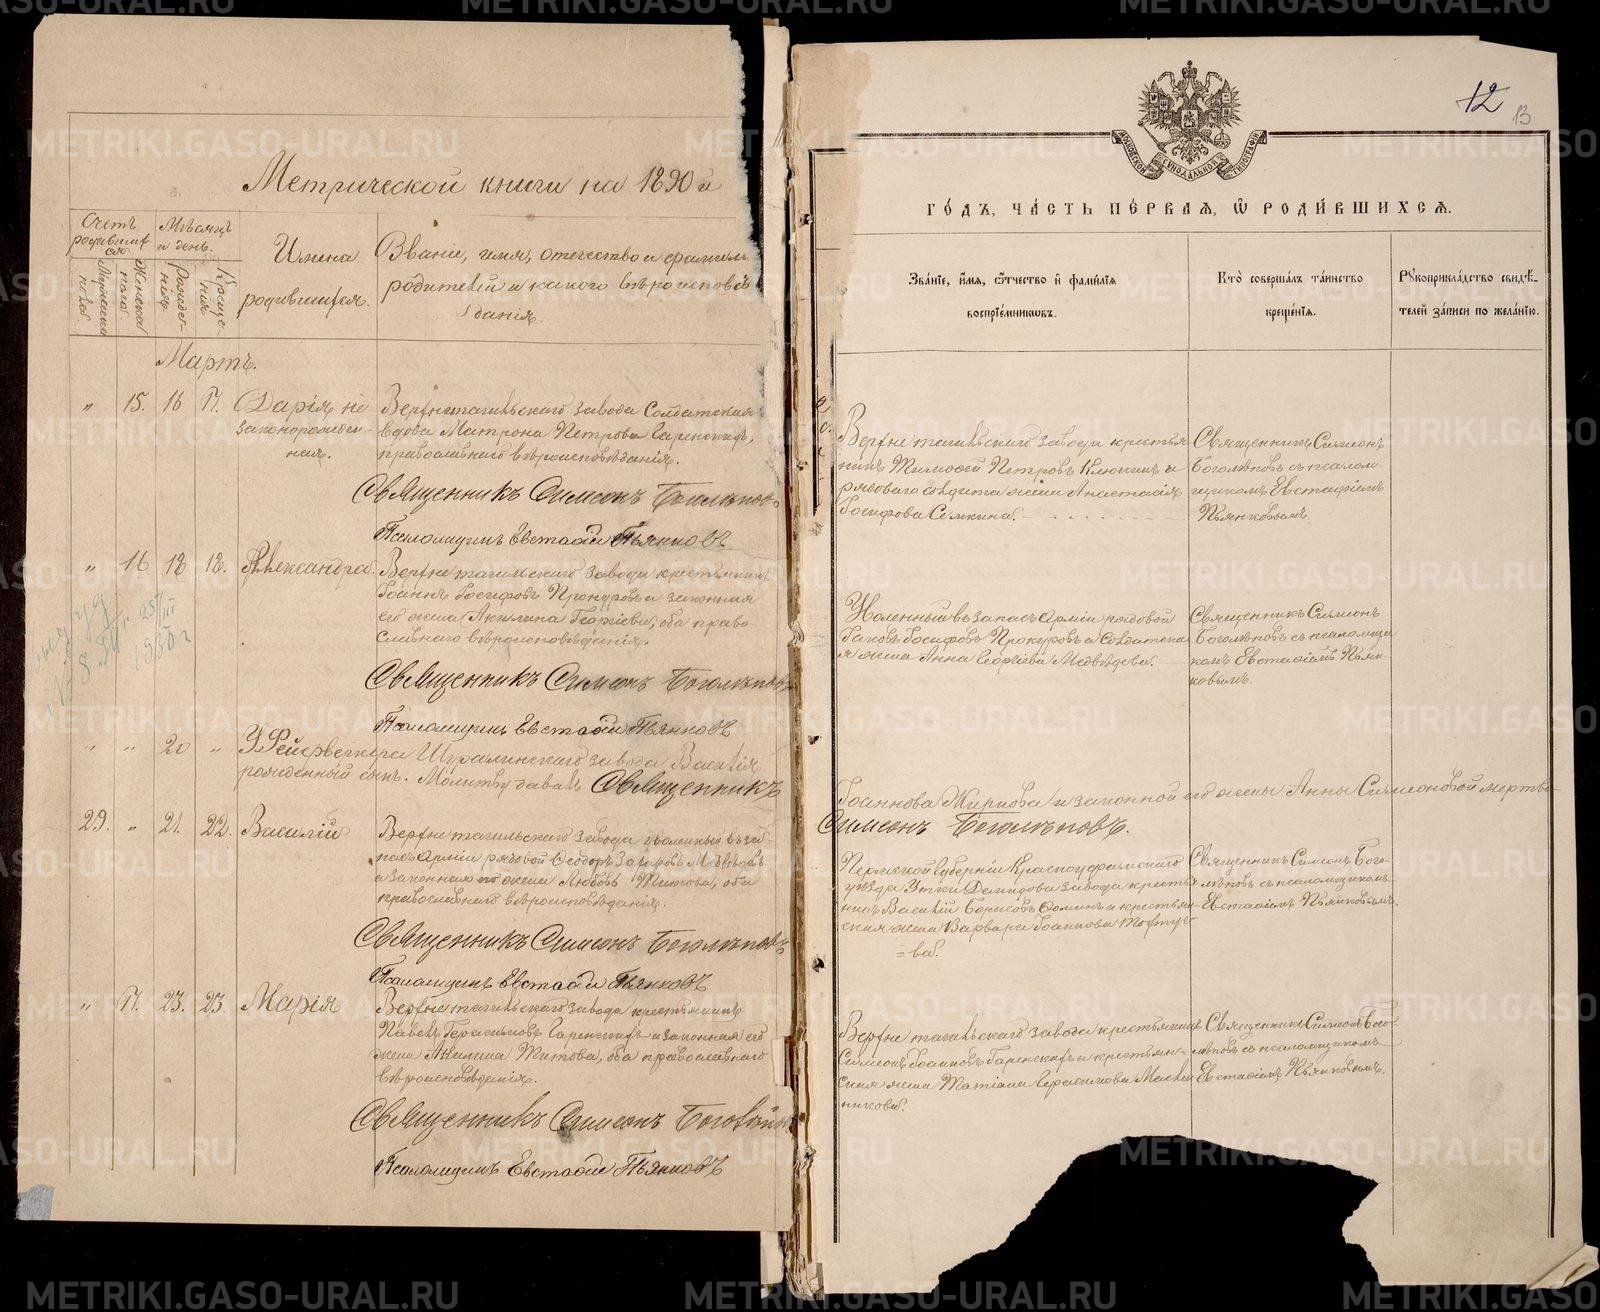 Метрической книги на 1890 й
Счетъ родившихся.
Мѣсяцъ и день.
Мужеска полов.
Женска полов.
Рожденія.
Крещенія.
Имена
родившихся.
Званіе, имя, отчество и фамилія
родителей и какого вѣроисповѣ
данія.
Мартъ.
" 15. 16 17. Дарія не
законорожден-
ная.
Верхнетагильскаго завода Солдатская
вдова Матрона Петрова
православнаго вѣроисповѣданія.
Священникъ Симеонъ Боголѣповъ
Псаломщикъ Евстафій Пьянковъ
" 16 18 18. Александра.
Верхнетагильскаго завода крестьянинъ
Іоаннъ Іосифовъ и законная
его жена Акилина Георгіева, оба право-
славнаго вѣроисповѣданія.
25/III
1950 г
Священникъ Симеонъ Боголѣповъ
Псаломщикъ Евстафій Пьянковъ
" " 20 " У Фейерверкера Шуралинскаго завода Василія
рожденный сынъ. Молитву давалъ Священникъ
29. " 21. 22. Василій
Верхнетагильскаго завода уволенный въ за-
пасъ Арміи рядовой Ѳеодоръ Медвѣдевъ
и законная его жена Любовь Титова, оба
православнаго вѣроисповѣданія.
Священникъ Симеонъ Боголѣповъ
Псаломщикъ Евстафій Пьянковъ
" 17. 23. 23. Марія
Верхнетагильскаго завода крестьянинъ
Павелъ Герасимовъ и законная его
жена Титова, оба православнаго
вѣроисповѣданія.
Священникъ Симеонъ
Псаломщикъ Евстафій Пьянковъ
12
13
МОСКОВСКОЙ СѴНОДАЛЬНОЙ ТИПОГРАФІИ
ГО́ДЪ, ЧА́СТЬ ПЕ́РВАЯ, Ѽ РОДИ́ВШИХСЯ.
Зва́нїе, и҆́мя, ѻ҆́тчество и҆ фами́лїя
воспрїе́мниковъ.
Кто̀ соверша́лъ та́инство
креще́нїя.
Рꙋкоприкла́дство свидѣ́-
телей за́писи по жела́нїю.
Верхнетагильскаго завода крестья
нинъ Тимофей Петровъ Клюкинъ и
рядоваго солдата жена Анастасія
Іосифова Семкина.
Священникъ Симеонъ
Боголѣповъ съ псалом-
щикомъ Евстафіемъ
Пьянковымъ.
Уволенный въ запасъ Арміи рядовой
Іаковъ Іосифовъ и Солдатска
я жена Анна Георгіева Медвѣдева.
Священникъ Симеонъ
Боголѣповъ съ псаломщи
комъ Евстафіемъ Пьян-
ковымъ.
Іоаннова Жиркова и законной его жены Анны Симеоновой мертво-
Симеонъ Боголѣповъ.
Пермской Губерніи Красноуфимскаго
уѣзда Утки Демидова завода кресть-
нинъ Василій Борисовъ Ѳоминъ и крестьян-
ская жена Варвара Іоаннова
=ва.
Священникъ Симеонъ Бого-
лѣповъ съ псаломщикомъ
Евстафіемъ Пьянковымъ.
Верхнетагильскаго завода крестьянинъ
Симеонъ Іоанновъ и крестьян-
ская жена Татіана Герасимова Масле
никова.
Священникъ Симеонъ Бого-
лѣповъ со псаломщикомъ
Евстафіемъ Пьянковымъ.
METRIKI.GASO-URAL.RU